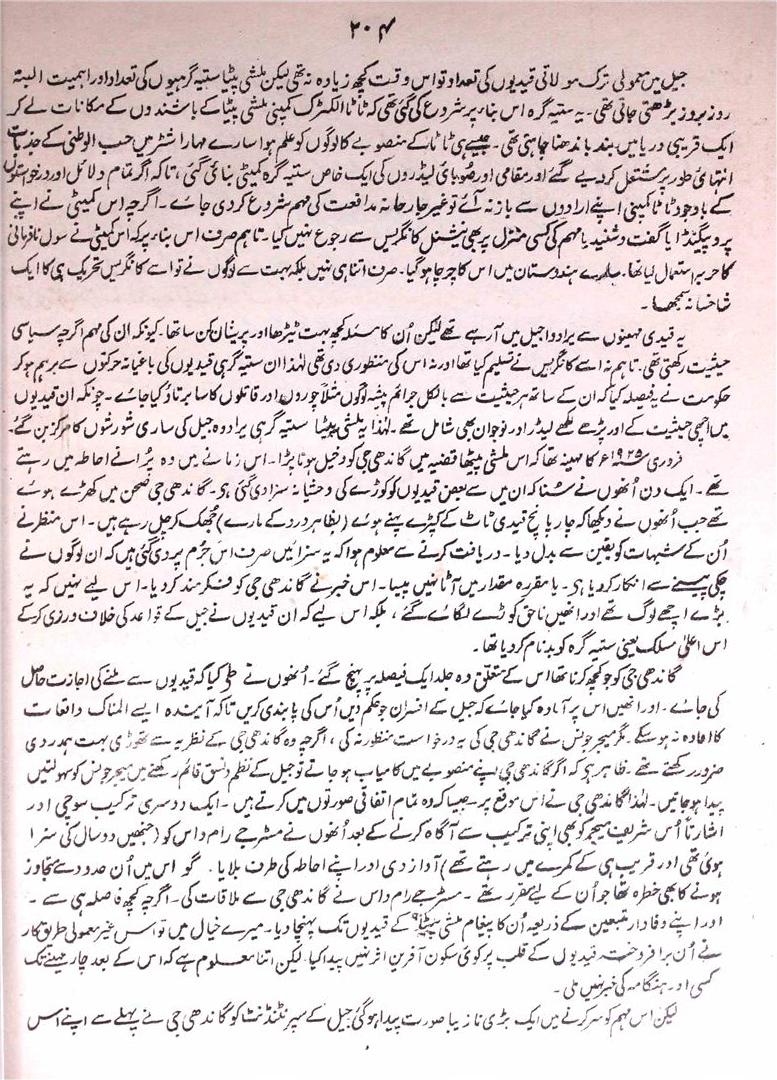 ۲۰۴
جیل میں معمولی ترک موالاتی قیدیوں کی تعداد تو اس وقت کچھ زیادہ نہ تھی لیکن ملشی پیٹیا ستیہ گرہیوں کی تعداد اور اہمیت البتہ
روز بروز بڑھتی جاتی تھی۔ یہ ستیہ گرہ اس بناء پر شروع کی گئی تھی کہ ٹاٹا الکٹرک کمپنی ملشی پیٹیا کے باشندوں کے مکانات لے کر
ایک قریبی دریا میں بند باندھنا چاہتی تھی۔ جیسے ہی ٹاٹا کے منصوبے کا لوگوں کو علم ہوا سارے مہاراشٹر میں حب الوطنی کے جذبات
انتہائی طور پر مشتعل کر دیے گئے اور مقامی اور صوبائی لیڈروں کی ایک خاص ستیہ گرہ کمیٹی بنائی گئی، تاکہ اگر تمام دلائل اور درخواستوں
کے باوجود ٹاٹا کمپنی اپنے ارادوں سے باز نہ آئے تو غیر جارحانہ مدافعت کی مہم شروع کر دی جائے۔ اگرچہ اس کمیٹی نے اپنے
پروپیگنڈا یا گفت و شنید یا مہم کی کسی منزل پر بھی نیشنل کانگریس سے رجوع نہیں کیا۔ تاہم صرف اس بناء پر کہ اس کمیٹی نے سول نافرمانی
کا حربہ استعمال کیا تھا۔ سارے ہندوستان میں اس کا چرچا ہو گیا۔ صرف اتنا ہی نہیں بلکہ بہت سے لوگوں نے تو اسے کانگریس تحریک ہی کا ایک
شاخسانہ سمجھا۔
یہ قیدی مہینوں سے یرادوا جیل میں آرہے تھے لیکن اُن کا مسئلہ کچھ بہت ٹیڑھا اور پریشان کن سا تھا۔ کیونکہ ان کی مہم اگرچہ سیاسی
حیثیت رکھتی تھی۔ تاہم نہ اسے کانگریس نے تسلیم کیا تھا اور نہ اس کی منظوری دی تھی لہٰذا ان ستیہ گرہی قیدیوں کی باغیانہ حرکتوں سے برہم ہو کر
حکومت نے یہ فیصلہ کیا کہ ان کے ساتھ ہر حیثیت سے بالکل جرائم پیشہ لوگوں مثلاً چوروں اور قاتلوں کا سا برتاؤ کیا جائے۔ چونکہ ان قیدیوں
میں اچھی حیثیت کے اور پڑھے لکھے لیڈر اور نوجوان بھی شامل تھے۔ لہٰذا یہ ملشی پیٹیا ستیہ گرہی یرادوہ جیل کی ساری شورشوں کا مرکز بن گئے۔
فروری ۱۹۲۵ء کا مہینہ تھا کہ اس ملشی پیٹھا قضیہ میں گاندھی جی کو دخیل ہونا پڑا۔ اس زمانے میں وہ پُرانے احاطہ میں رہتے
تھے۔ ایک دن اُنھوں نے سُنا کہ ان میں سے بعض قیدیوں کو کوڑے کی وحشیانہ سزا دی گئی ہے۔ گاندھی جی صحن میں کھڑے ہوئے
تھے جب اُنھوں نے دیکھا کہ چار پانچ قیدی ٹاٹ کے کپڑے پہنے ہوئے (بظاہر درد کے مارے) جُھک کر چل رہے ہیں۔ اس منظر نے
اُن کے شبہات کو یقین سے بدل دیا۔ دریافت کرنے سے معلوم ہوا کہ یہ سزائیں صرف اس جُرم پر دی گئی ہیں کہ ان لوگوں نے
چکی پیسنے سے انکار کر دیا ہے۔ یا مقررہ مقدار میں آٹا نہیں پیسا۔ اس خبر نے گاندھی جی کو فکرمند کر دیا۔ اس لیے نہیں کہ یہ
بڑے اچھے لوگ تھے اور انھیں ناحق کوڑے لگائے گئے، بلکہ اس لیے کہ ان قیدیوں نے جیل کے قواعد کی خلاف ورزی کرکے
اس اعلیٰ مسلک یعنی ستیہ گرہ کو بدنام کر دیا تھا۔
گاندھی جی کو جو کچھ کرنا تھا اس کے متعلق وہ جلد ایک فیصلہ پر پہنچ گئے۔ اُنھوں نے طے کیا کہ قیدیوں سے ملنے کی اجازت حاصل
کی جائے۔ اور انھیں اس پر آمادہ کیا جائے کہ جیل کے افسران جو حکم دیں اُس کی پابندی کریں تاکہ آیندہ ایسے المناک واقعات
کا اعادہ نہ ہوسکے۔ مگر میجر جونس نے گاندھی جی کی یہ درخواست منظور نہ کی، اگرچہ وہ گاندھی جی کے نظریہ سے تھوڑی بہت ہمدردی
ضرور رکھتے تھے۔ ظاہر ہے کہ اگر گاندھی جی اپنے منصوبے میں کامیاب ہو جاتے تو جیل کے نظم و نسق قائم رکھنے میں میجر جونس کو سہولتیں
پیدا ہو جاتیں۔ لہٰذا گاندھی جی نے اس موقع پر۔ جیسا کہ وہ تمام اتفاقی صورتوں میں کرتے ہیں۔ ایک دوسری ترکیب سوچی اور
اشارتاً اُس شریف میجر کو بھی اپنی ترکیب سے آگاہ کرنے کے بعد اُنھوں نے مسٹر جے رام داس کو (جنھیں دو سال کی سزا
ہوئی تھی اور قریب ہی کے کمرے میں رہتے تھے) آواز دی اور اپنے احاطہ کی طرف بلایا۔ گو اس میں اُن حدود سے تجاوز
ہونے کا بھی خطرہ تھا جو اُن کے لیے مقرر تھے۔ مسٹر جے رام داس نے گاندھی جی سے ملاقات کی۔ اگرچہ کچھ فاصلہ ہی سے۔
اور اپنے وفادار متبعین کے ذریعہ اُن کا پیغام ملشی پیٹیا کے قیدیوں تک پہنچا دیا۔ میرے خیال میں تو اس غیر معمولی طریق کار
نے اُن برافروختہ قیدیوں کے قلب پر کوئی سکون آفرین اثر نہیں پیدا کیا۔ لیکن اتنا معلوم ہے کہ اس کے بعد چار مہینے تک
کسی اور ہنگامہ کی خبر نہیں ملی۔
لیکن اس مہم کو سر کرنے میں ایک بڑی نازیبا صورت پیدا ہو گئی جیل کے سپرنٹنڈنٹ کو گاندھی جی نے پہلے سے اپنے اس